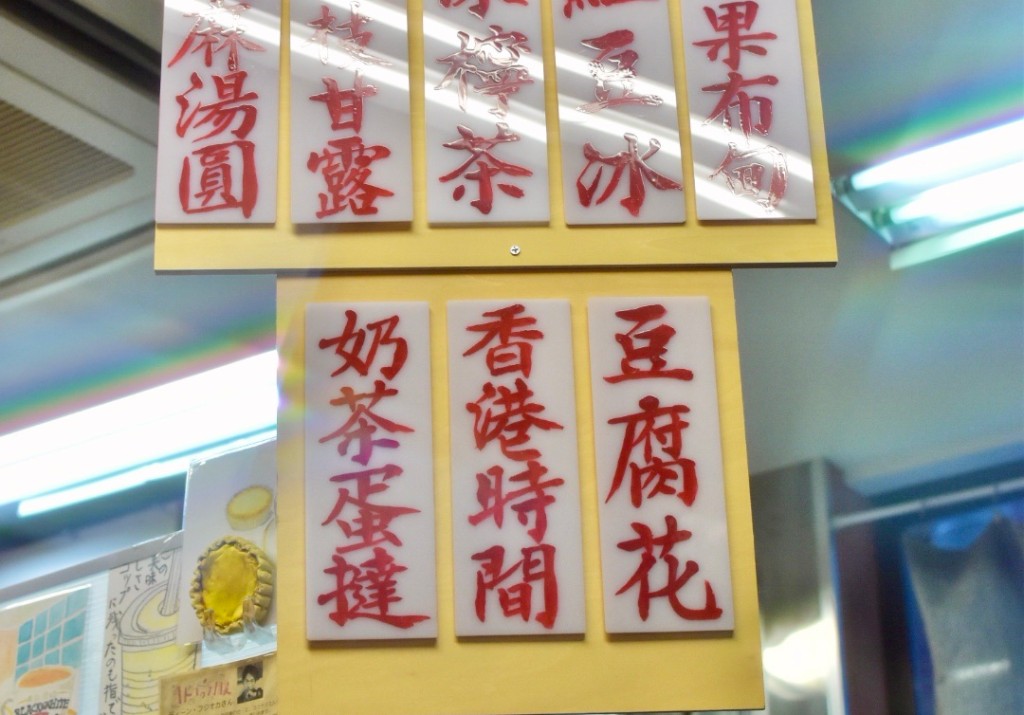 麻湯圓
枝甘露
檸茶
紅豆冰
果布甸
奶茶蛋撻
香港時間
豆腐花
BLACK&WHITE